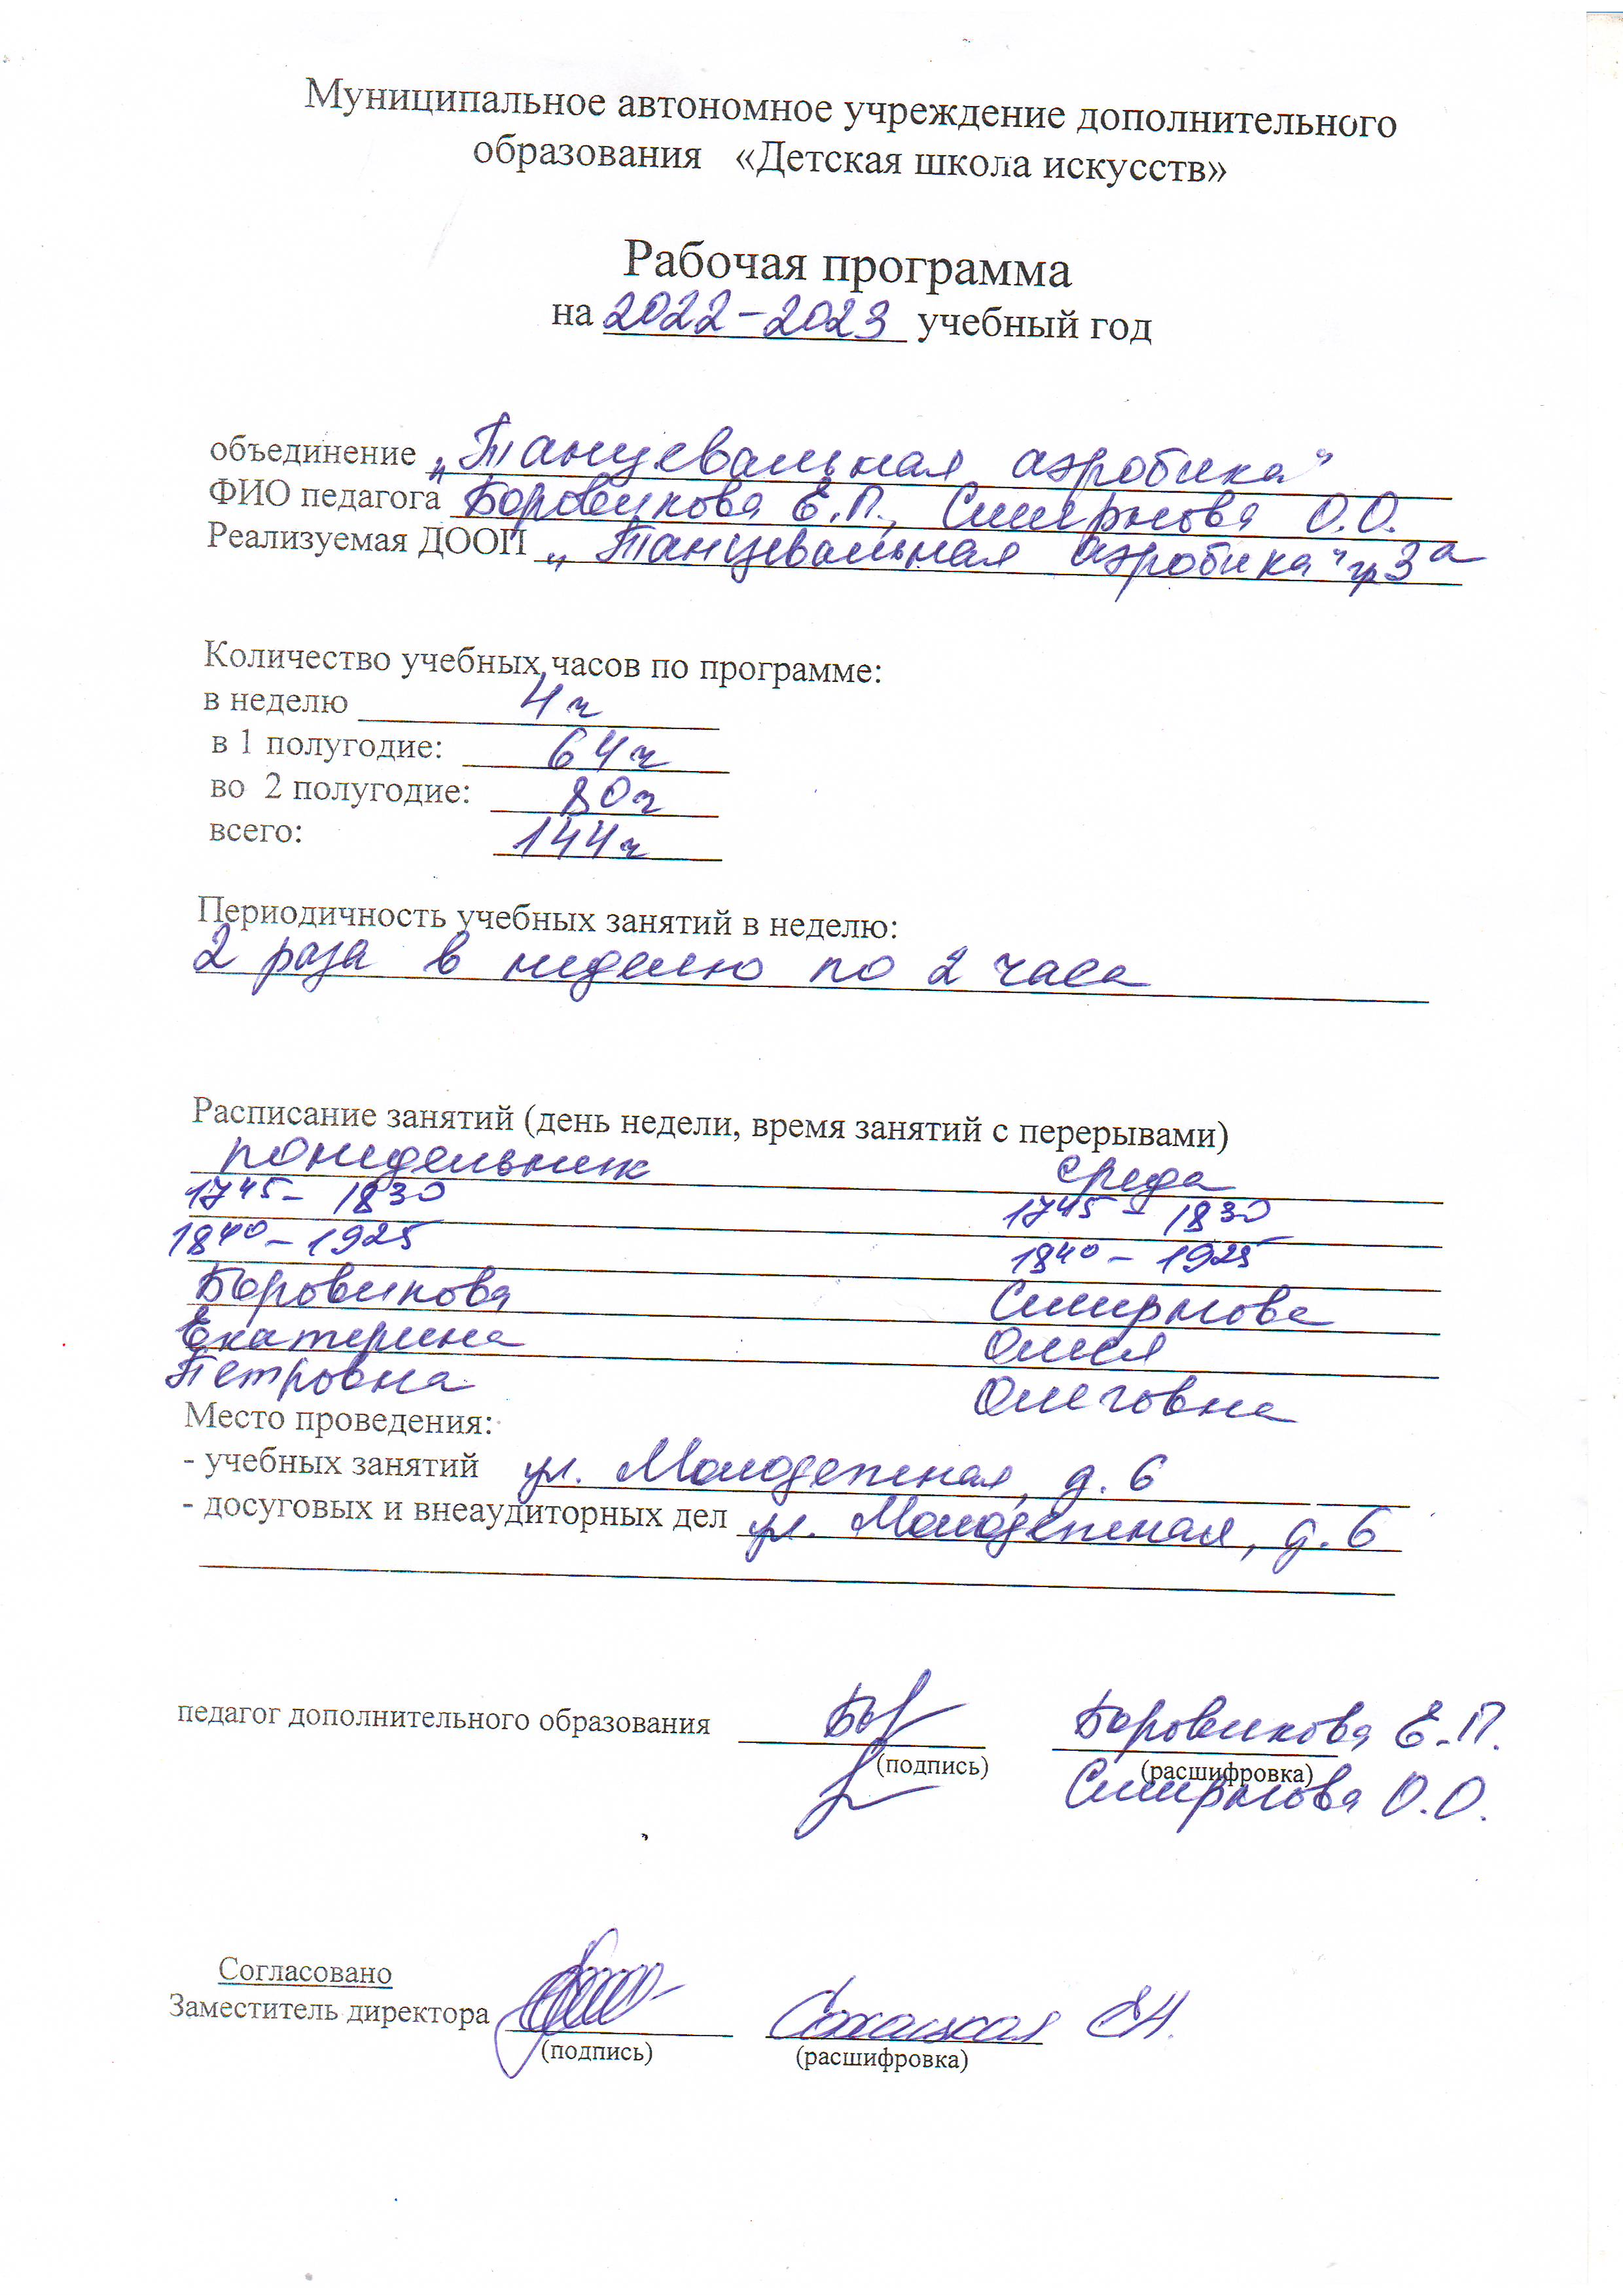 Муниципальное автономное учреждение дополнительного
образования «Детская школа искусств»
Рабочая программа
на 2022-2023 учебный год
объединение „Танцевальная аэробика"
ФИО педагога Боровикова Е.П., Смирнова О.О.
Реализуемая ДООП „Танцевальная аэробика" гр 3а
Количество учебных часов по программе:
в неделю 4ч
в 1 полугодие: 64ч
во 2 полугодие: 80ч
всего: 144ч
Периодичность учебных занятий в неделю:
2 раза в неделю по 2 часа
Расписание занятий (день недели, время занятий с перерывами)
понедельник среда
17⁴⁵- 18³⁰ 17⁴⁵ - 18³⁰
18⁴⁰-19²⁵ 18⁴⁰ - 19²⁵
Боровикова Смирнова
Екатерина Олеся
Петровна Олеговна
Место проведения:
- учебных занятий ул. Молодежная, д. 6
- досуговых и внеаудиторных дел ул. Молодежная, д. 6
педагог дополнительного образования Боровикова Е.П.
(подпись) (расшифровка)
Смирнова О.О.
Согласовано
Заместитель директора
(подпись) (расшифровка)